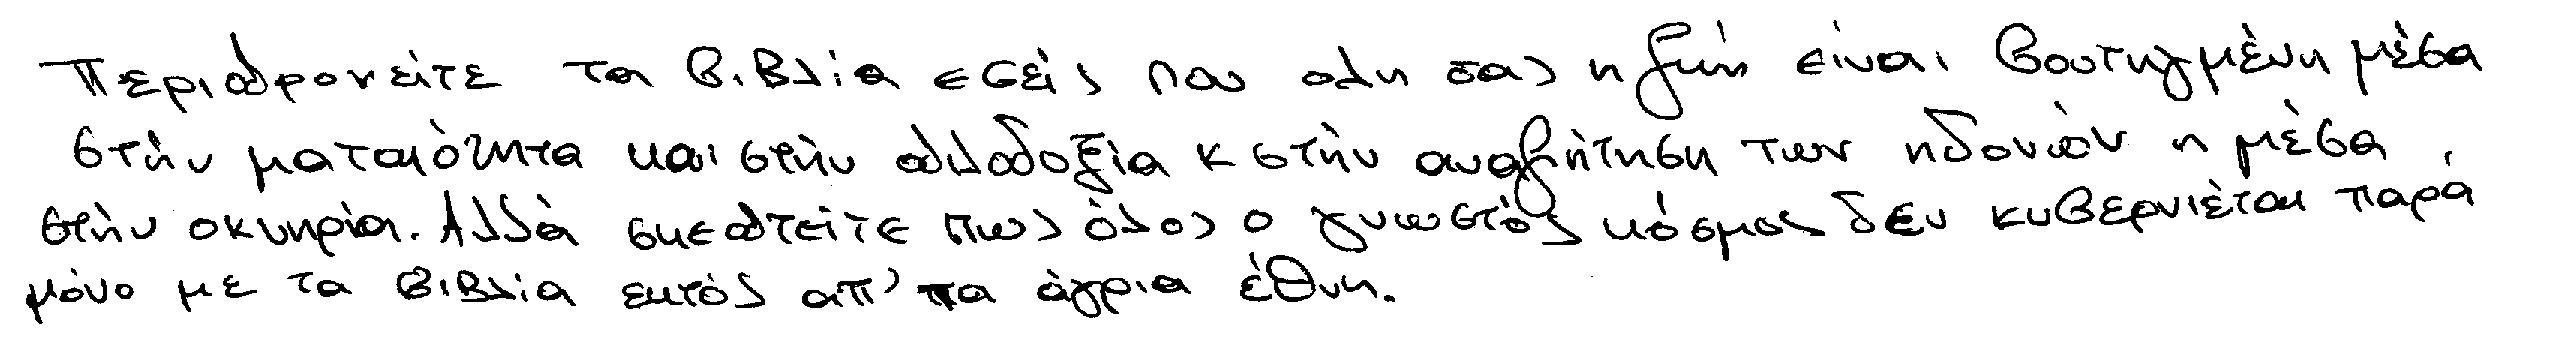 Περιφρονείτε τα βιβλία εσείς που ολη σας η ζωή είναι βουτηγμένη μέσα
στήν ματαιότητα και στήν φιλοδοξία κ στήν αναζήτηση των ηδονών η μέσα
στήν οκνηρία. Αλλά σκεφτείτε πως όλος ο γνωστός κόσμος δεν κυβερνιέται παρά
μόνο με τα βιβλία εκτός απ' τα άγρια έθνη.